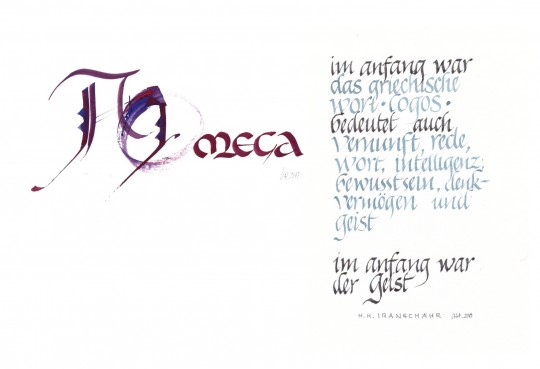 A Ω omega
im anfang war
das griechische
wort · Logos ·
bedeutet auch
Vernunft, rede,
wort, intelligenz,
bewusstsein, denk-
vermögen und
geist
im anfang war
der Geist
H.K. IRANSCHÄHR